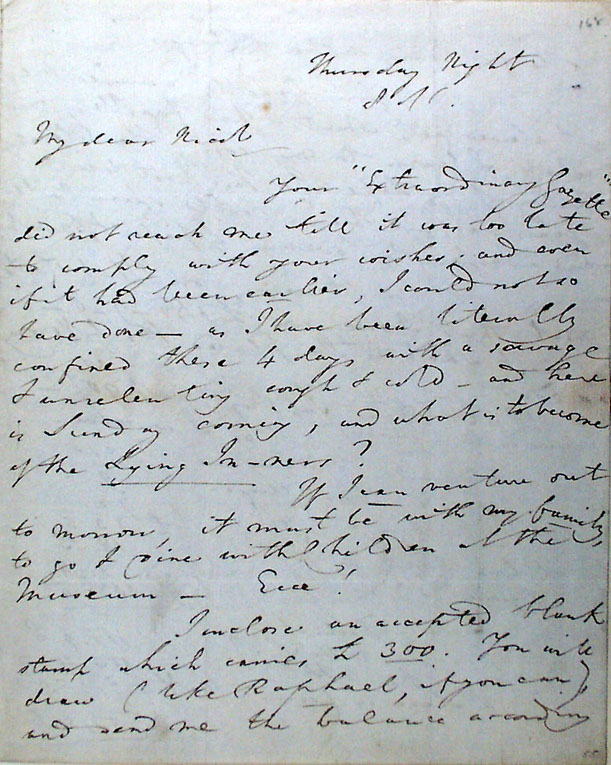 168
Thursday Night
My dear Nicol
Your "Extraordinary Gazette"
did not reach me till it was too late
to comply with your wishes, and even
if it had been earlier, I could not so
have done — as I have been literally
confined these 4 days with a savage
& unrelenting cough & cold — and here
is Sunday coming, and what is to become
of the Lying In-ners?
If I can venture out
to morrow, it must be with my family,
to go & dine with Children at the
Museum — Ecce!
I inclose an accepted blank
stamp which carries £ 300. You will
draw (like Raphael, if you can)
and send me the balance according